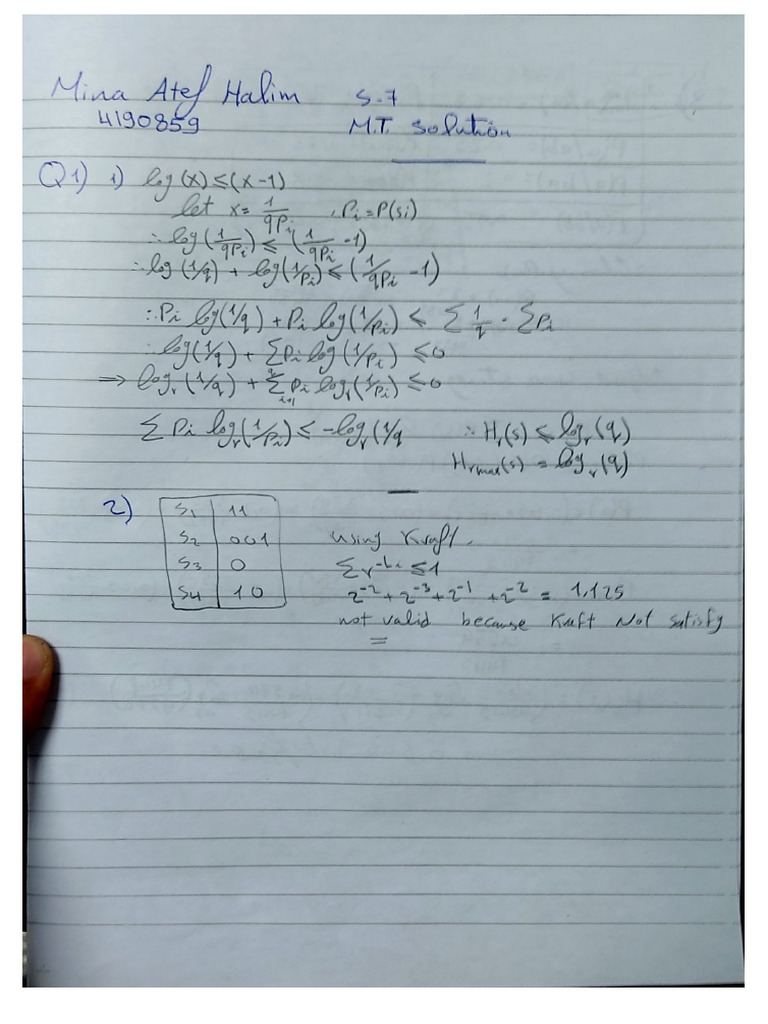 Mina Atef Halim S.7
4190859 M.T. Solution
Q1) 1) log(x) ≤ (x-1)
let x = 1/qPi , Pi = P(si)
∴ log(1/qPi) ≤ (1/qPi - 1)
∴ log(1/q) + log(1/Pi) ≤ (1/qPi - 1)
∴ Pi log(1/q) + Pi log(1/Pi) ≤ Σ 1/q - ΣPi
∴ log(1/q) + ΣPi log(1/Pi) ≤ 0
⇒ logr(1/q) + Σ Pi logr(1/Pi) ≤ 0
Σ Pi logr(1/Pi) ≤ -logr(1/q ∴ Hr(s) ≤ logr(q)
Hrmax(s) = logr(q)
2) S1 11
S2 001 using Kraft.
S3 0 Σr^-Li ≤ 1
S4 10 2^-2 + 2^-3 + 2^-1 + 2^-2 = 1,125
not valid because Kraft Not satisfy